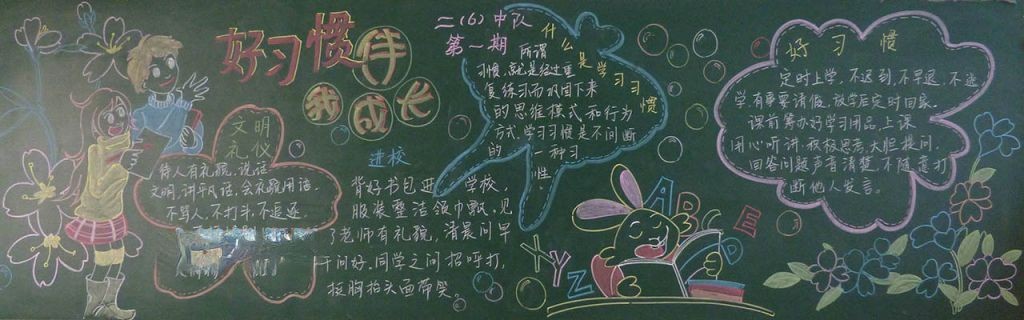 好习惯伴
我成长
二(6)中队
第一期
文明
礼仪
待人有礼貌,说话
文明,讲平风话,会礼貌用语。
不骂人,不打斗,不追逐
进校
背好书包进学校,
服装整洁领巾飘,见
了老师有礼貌,清晨问早
午问好。同学之间招呼打,
挺胸抬头面带笑。
什么是学习习惯
所谓
习惯,就是经过重
复练习而巩固下来
的思维模式和行为
方式,学习习惯是不间断
的一种习
惯
好习惯
定时上学,不迟到,不早退,不逃
学有事要请假,放学后定时回家。
课前筹办好学习用品,上课
用心听讲,积极思考,大胆提问,
回答问题声音清楚,不随意打
断他人发言。
ABCDE
XYZ